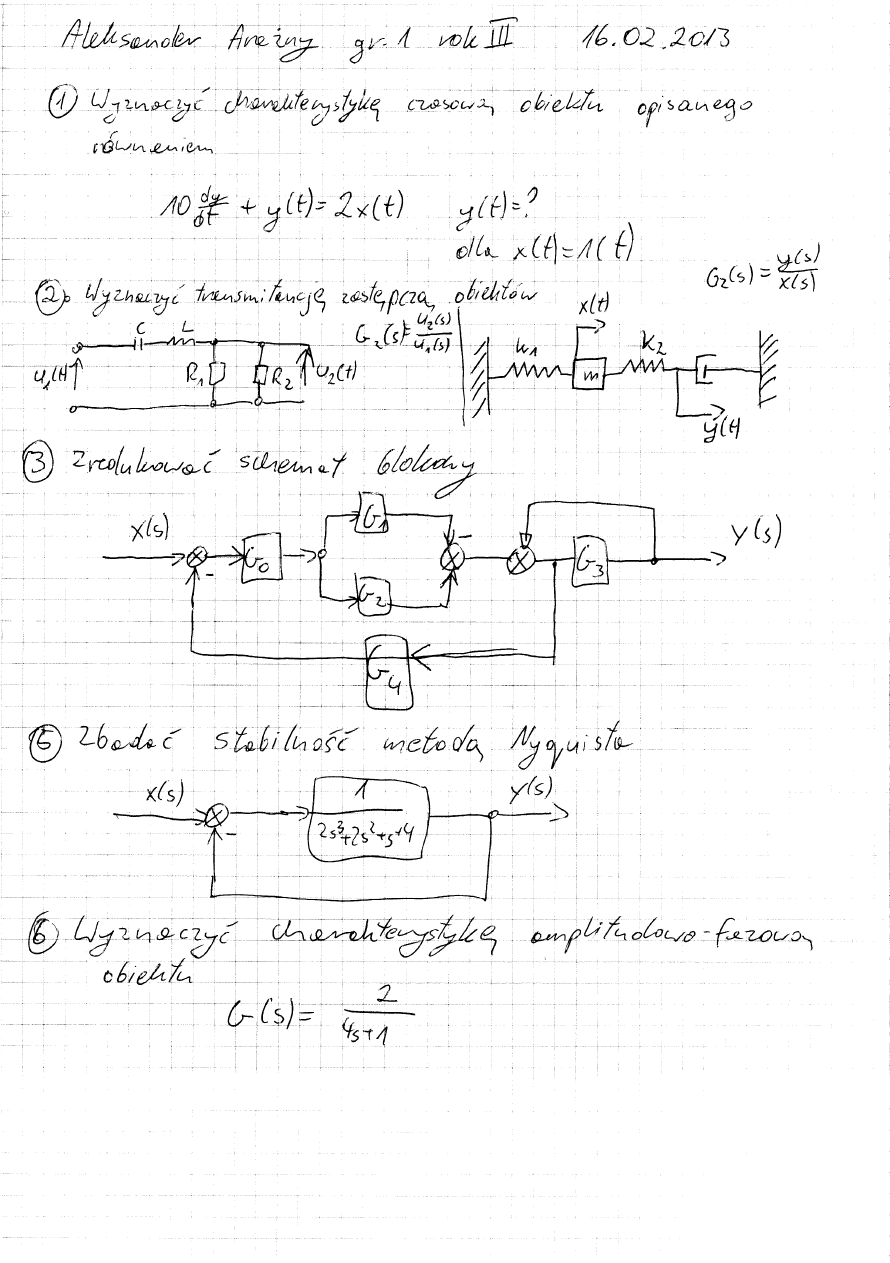 Aleksander Areżny gr. 1 rok III 16.02.2013
① Wyznaczyć charakterystykę czasową obiektu opisanego
równaniem
10 dy/dt + y(t) = 2x(t) y(t)=?
dla x(t)=1(t)
G₂(s) = y(s)/x(s)
② Wyznaczyć transmitancję zastępczą obiektów
C L G₂(s) = u₂(s)/u₁(s) x(t)
u₁(t) R₁ R₂ u₂(t) k₁ m k₂
y(t)
③ Zredukować schemat blokowy
X(s) - G₀ G₁ - G₂ G₃ Y(s)
G₄
⑤ Zbadać stabilność metodą Nyquista
x(s) - 1/(2s³+2s²+s+4) y(s)
⑥ Wyznaczyć charakterystykę amplitudowo-fazową
obiektu
G(s) = 2/(4s+1)